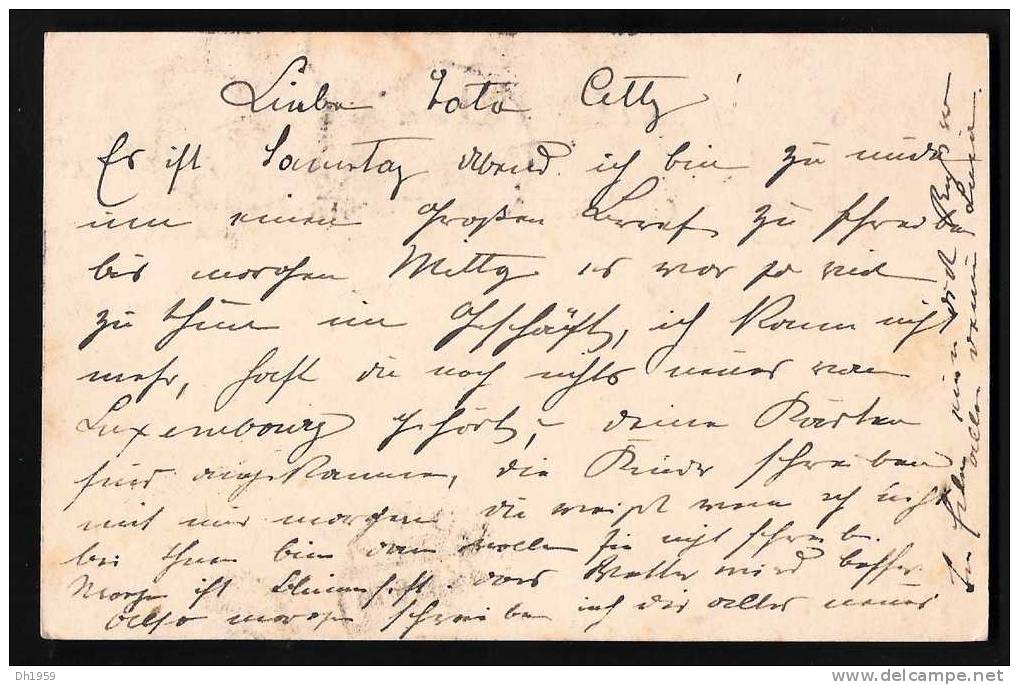 Liebe Tata Cetty!
Es ist Samstag Abend ich bin zu müde
um einen Großen Brief zu schreiben
bis morgen Mittg es war so viel
zu thun im Geschäft, ich kann nicht
mehr, hast du noch nichts neues von
Luxembourg gehört, deine Karten
sind angekommen, die Kinder schreiben
mit mir morgen du weißt wenn ich nicht
bei Ihnen bin dann wollen sie nicht schreiben.
Morgen ist das Wetter wird besser
also morgen schreiben ich dir alles neues
von
allen
DH1959
delcampe.net